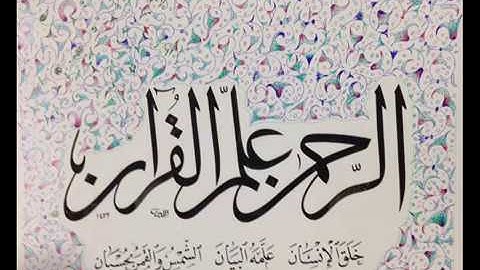 الرحمن علم القرآن
خَلَقَ الْإِنْسَانَ عَلَّمَهُ الْبَيَانَ الشَّمْسُ وَالْقَمَرُ بِحُسْبَانٍ